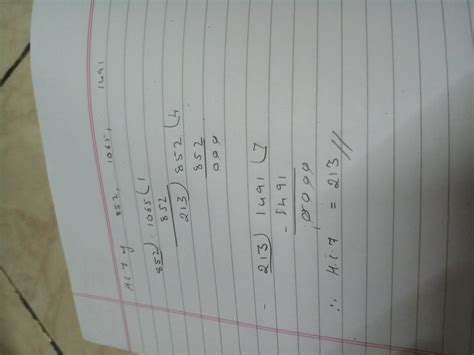 H.C.F of 852, 1065, 1491
852) 1065 (1
852
213) 852 (4
852
000
213) 1491 (7
- 1491
0000
∴ H.C.F = 213//